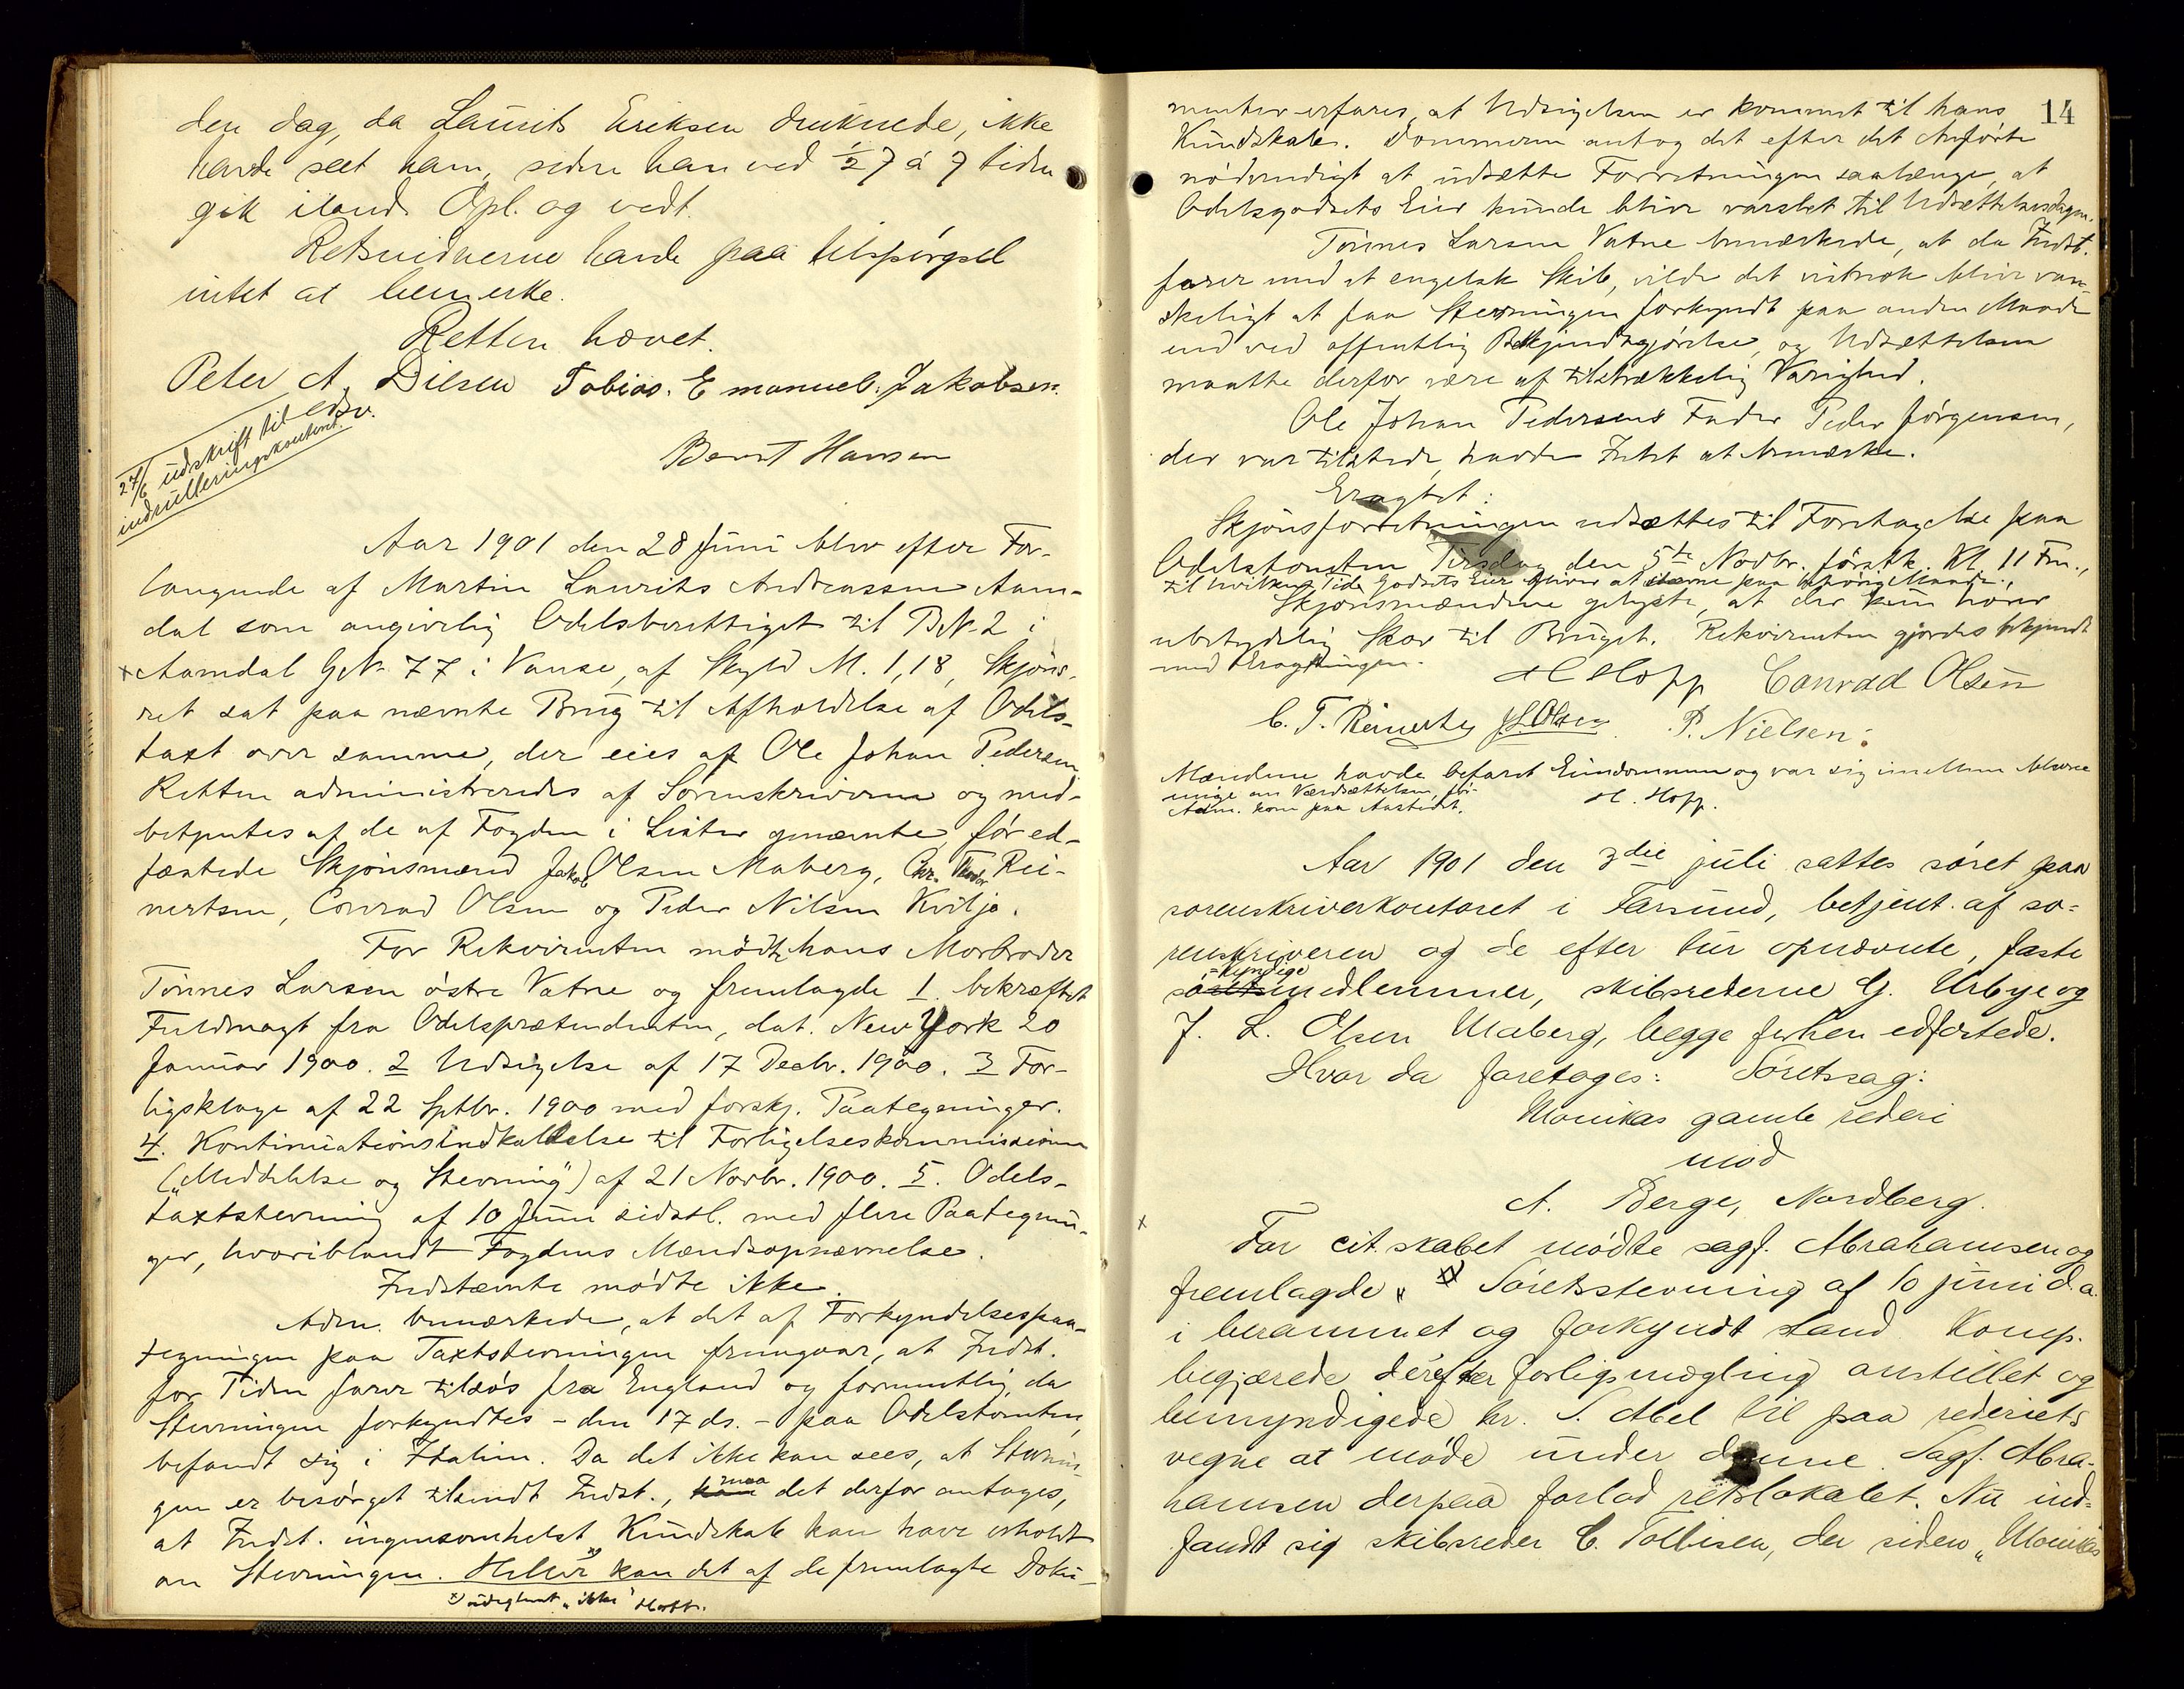 den dag, da Laurits Eriksen druknede, ikke
havde seet ham, siden han ved ½ 7 á 7 tiden
gik iland. Opl. og vedt.
Retsvidnerne havde paa tilspörgsel
intet at bemerke.
Retten hævet.
Peter A. Dilsen Tobias. Emanuel. Jakobsen.
27/6 udskrift til edsv.
indrulleringskontoret.
Bernt Hansen
Aar 1901 den 28 Juni blev efter For-
langende af Martin Laurits Andreassen Aam-
dal som angivelig Odelsberettiget til B.N. 2 i
x Aamdal G.N. 77 i Vanse, af Skyld M. 1,18, Skjöns-
ret sat paa nævnte Brug til Afholdelse af Odels-
taxt over samme, der eies af Ole Johan Pedersen.
Retten administreredes af Sorenskriveren og med-
betjentes af de af Fogden i Lister opnævnte, för ed-
fæstede Skjönsmænd Jakob Olsen Maberg, Chr. Teodor Rei-
nertsen, Conrad Olsen og Peder Nilsen Kviljo.
For Rekvirenten mödte hans Morbroder
Tönnes Larsen östre Vatne og fremlagde 1. bekræftet
Fuldmagt fra Odelsprætendenten, dat. New York 20
Januar 1900. 2 Udsigelse af 17 Decbr. 1900. 3 For-
ligsklage af 22 Sptbr. 1900 med forskj. Paategninger.
4. Kontinuationsindkaldelse til Forligelseskommissionen
("Meddelelse og Stevning") af 21 Novbr. 1900. 5. Odels-
taxtstevning af 10 Juni sidstl. med flere Paategnin-
ger, hvoriblandt Fogdens Mændsopnævnelse.
Indstævnte mödte ikke.
Adm. bemærkede, at det af Forkyndelsespaa-
tegningen paa Taxtstevningen fremgaar, at Indst.
for Tiden farer tilsös fra England og formentlig, da
Stevningen forkyndtes - den 17 ds. - paa Odelstomten,
befandt sig i Italien. Da det ikke kan sees, at Stevnin-
gen er besörget tilsendt Indst., maa det derfor antages,
at Indst. ingensomhelst Kundskab kan have erholdt
om Stevningen. Heller x) kan det af de fremlagte Doku-
x) udeglemt "ikke" Hopp.
14
menter erfares, at Udsigelsen er kommet til hans
Kundskab. Dommeren antog det efter det Anförte
nödvendigt at udsætte Forretningen saalænge, at
Odelsgodsets Eier kunde blive varslet til Udsættelsesdagen.
Tönnes Larsen Vatne bemærkede, at da Indst.
farer med et engelsk Skib, vilde det vistnok blive van-
skeligt at faa Stevningen forkyndt paa anden Maade
end ved offentlig Bekjendtgjörelse, og Udsættelsen
maatte derfor være af tilstrækkelig Varighed.
Ole Johan Pedersens Fader Peder Jörgensen,
der var tilstede, havde Intet at bemærke.
Eragtet:
Skjönsforretningen udsættes til Foretagelse paa
Odelstomten Tirsdag den 5te Novbr. förstk. Kl. 11 Fm.,
til hvilken Tid Godsets Eier bliver at stævne paa behörig Maade.
Skjönsmændene oplyste, at der kun hörer
ubetydelig Skov til Bruget. Rekvirenten gjordes bekjendt
med Eragtningen.
H Hopp Conrad Olsen
C. T. Reinertsen J. L. Olsen P. Nielsen.
Mændene havde befaret Eiendommen og var sig imellem blevne
enige om Værdsættelsen, för
Adm. kom paa Aastedet. H. Hopp.
Aar 1901 den 3die juli sattes söret paa
sorenskriverkontoret i Farsund, betjent af so-
renskriveren og de efter tur opnævnte, faste
sökyndige medlemmer, skibsrederne G. Urbye og
J. L. Olsen Maberg, begge forhen edfæstede.
Hvor da foretoges: Söretssag:
Monikas gamle rederi
mod
A. Berge, Nordberg.
x
For cit.skabet mödte sagf. Abrahamsen og
fremlagde Söretsstevning af 10 juni d.a.
i berammet og forkyndt stand. Komp.
begjærede derefter forligsmægling anstillet og
bemyndigede hr. S. Abel til paa rederiets
vegne at möde under denne. Sagf. Abra-
hamsen derpaa forlod retslokalet. Nu ind-
fandt sig skibsreder C. Tollisen, der siden "Monikas